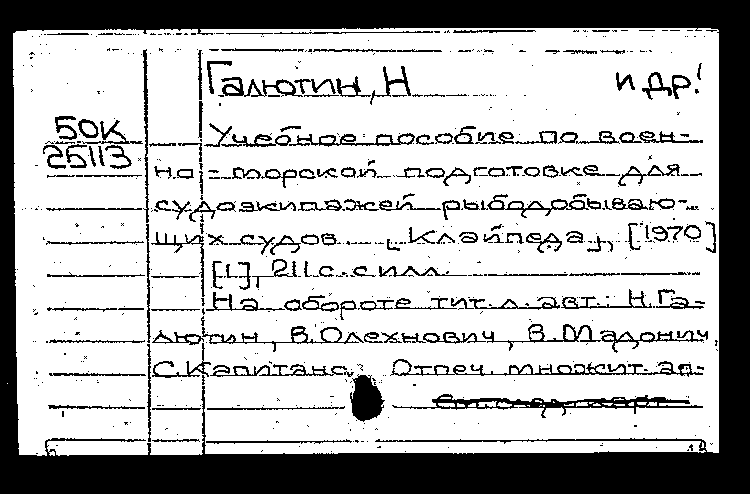 Галютин, Н и др.
50К
25113
Учебное пособие по воен-
но-морской подготовке для
судоэкипажей рыбодобываю-
щих судов. [Клайпеда], [1970]
[1], 211 с. с илл.
На обороте тит. л. авт.: Н. Га-
лютин, В. Олехнович, В. Мадонич,
С. Капитана. Отпеч. множит. ап-